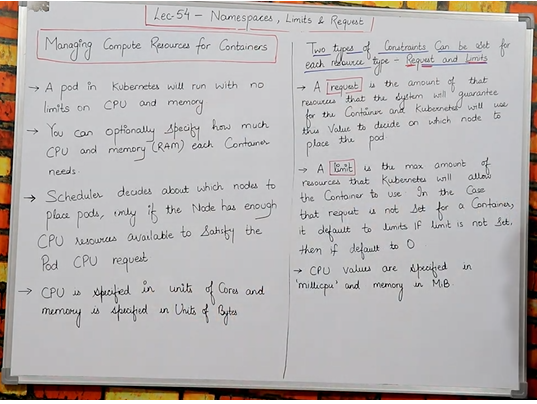 Lec-54 - Namespaces, Limits & Request
Managing Compute Resources for Containers
→ A pod in Kubernetes will run with no
limits on CPU and memory
→ You can optionally Specify how much
CPU and memory (RAM) each Container
needs.
→ Scheduler decides about which nodes to
place pods, only if the Node has enough
CPU resources available to Satisfy the
Pod CPU request
→ CPU is specified in units of Cores and
memory is specified in Units of Bytes
Two types of Constraints Can be set for
each resource type - Request and Limits
→ A request is the amount of that
resources that the system will guarantee
for the Container and Kubernetes will use
this Value to decide on which node to
place the pod
→ A limit is the max amount of
resources that Kubernetes will allow
the Container to use. In the Case
that request is not Set for a Container,
it default to limits. If limit is not Set,
then if default to 0
→ CPU values are specified in
'millicpu' and memory in MiB.